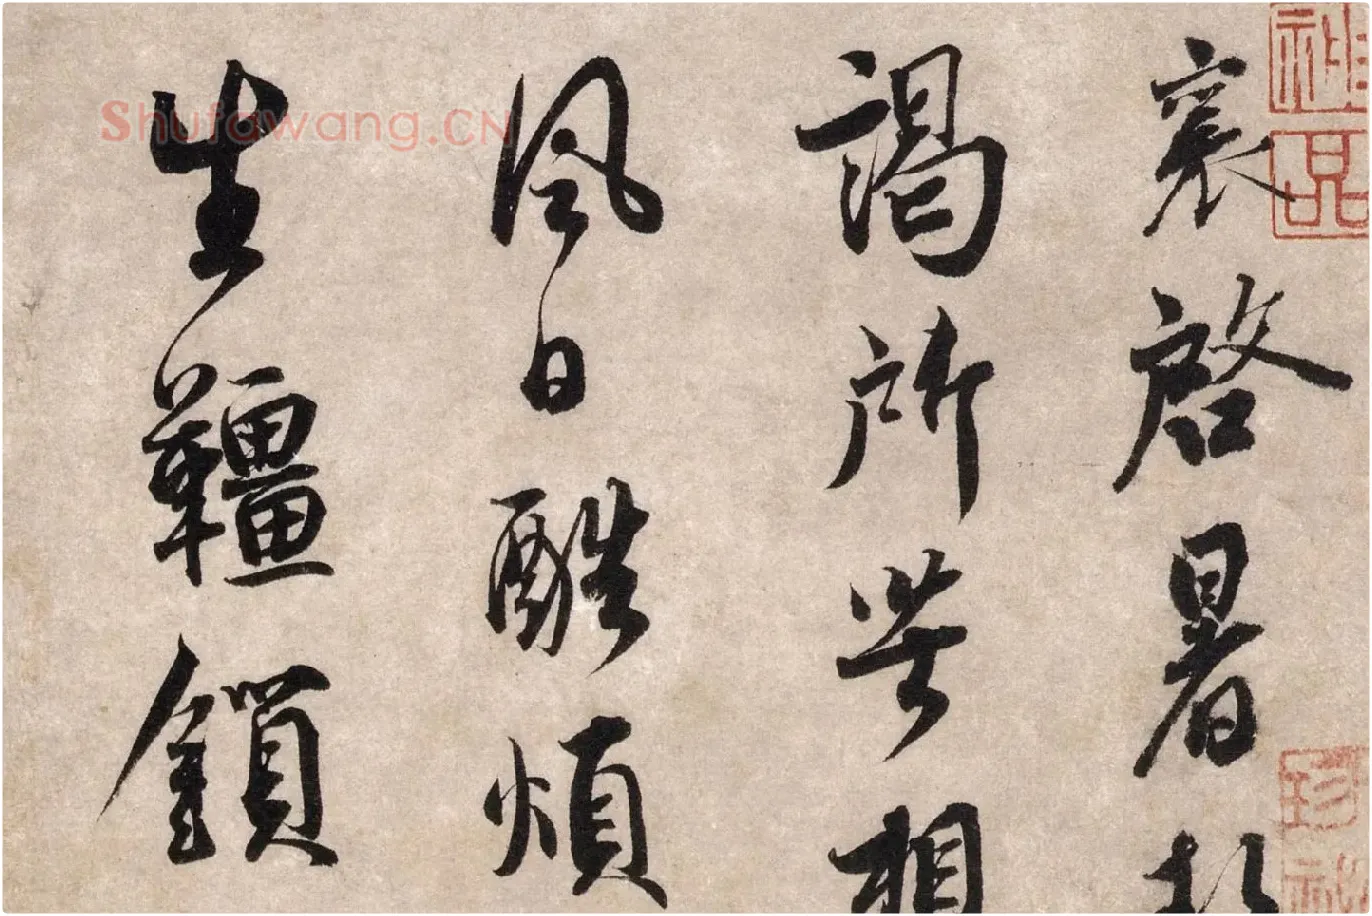 襄啓暑
謁所苦相
風日酷煩
生韁鎖
Shufawang.CN
神品
珍